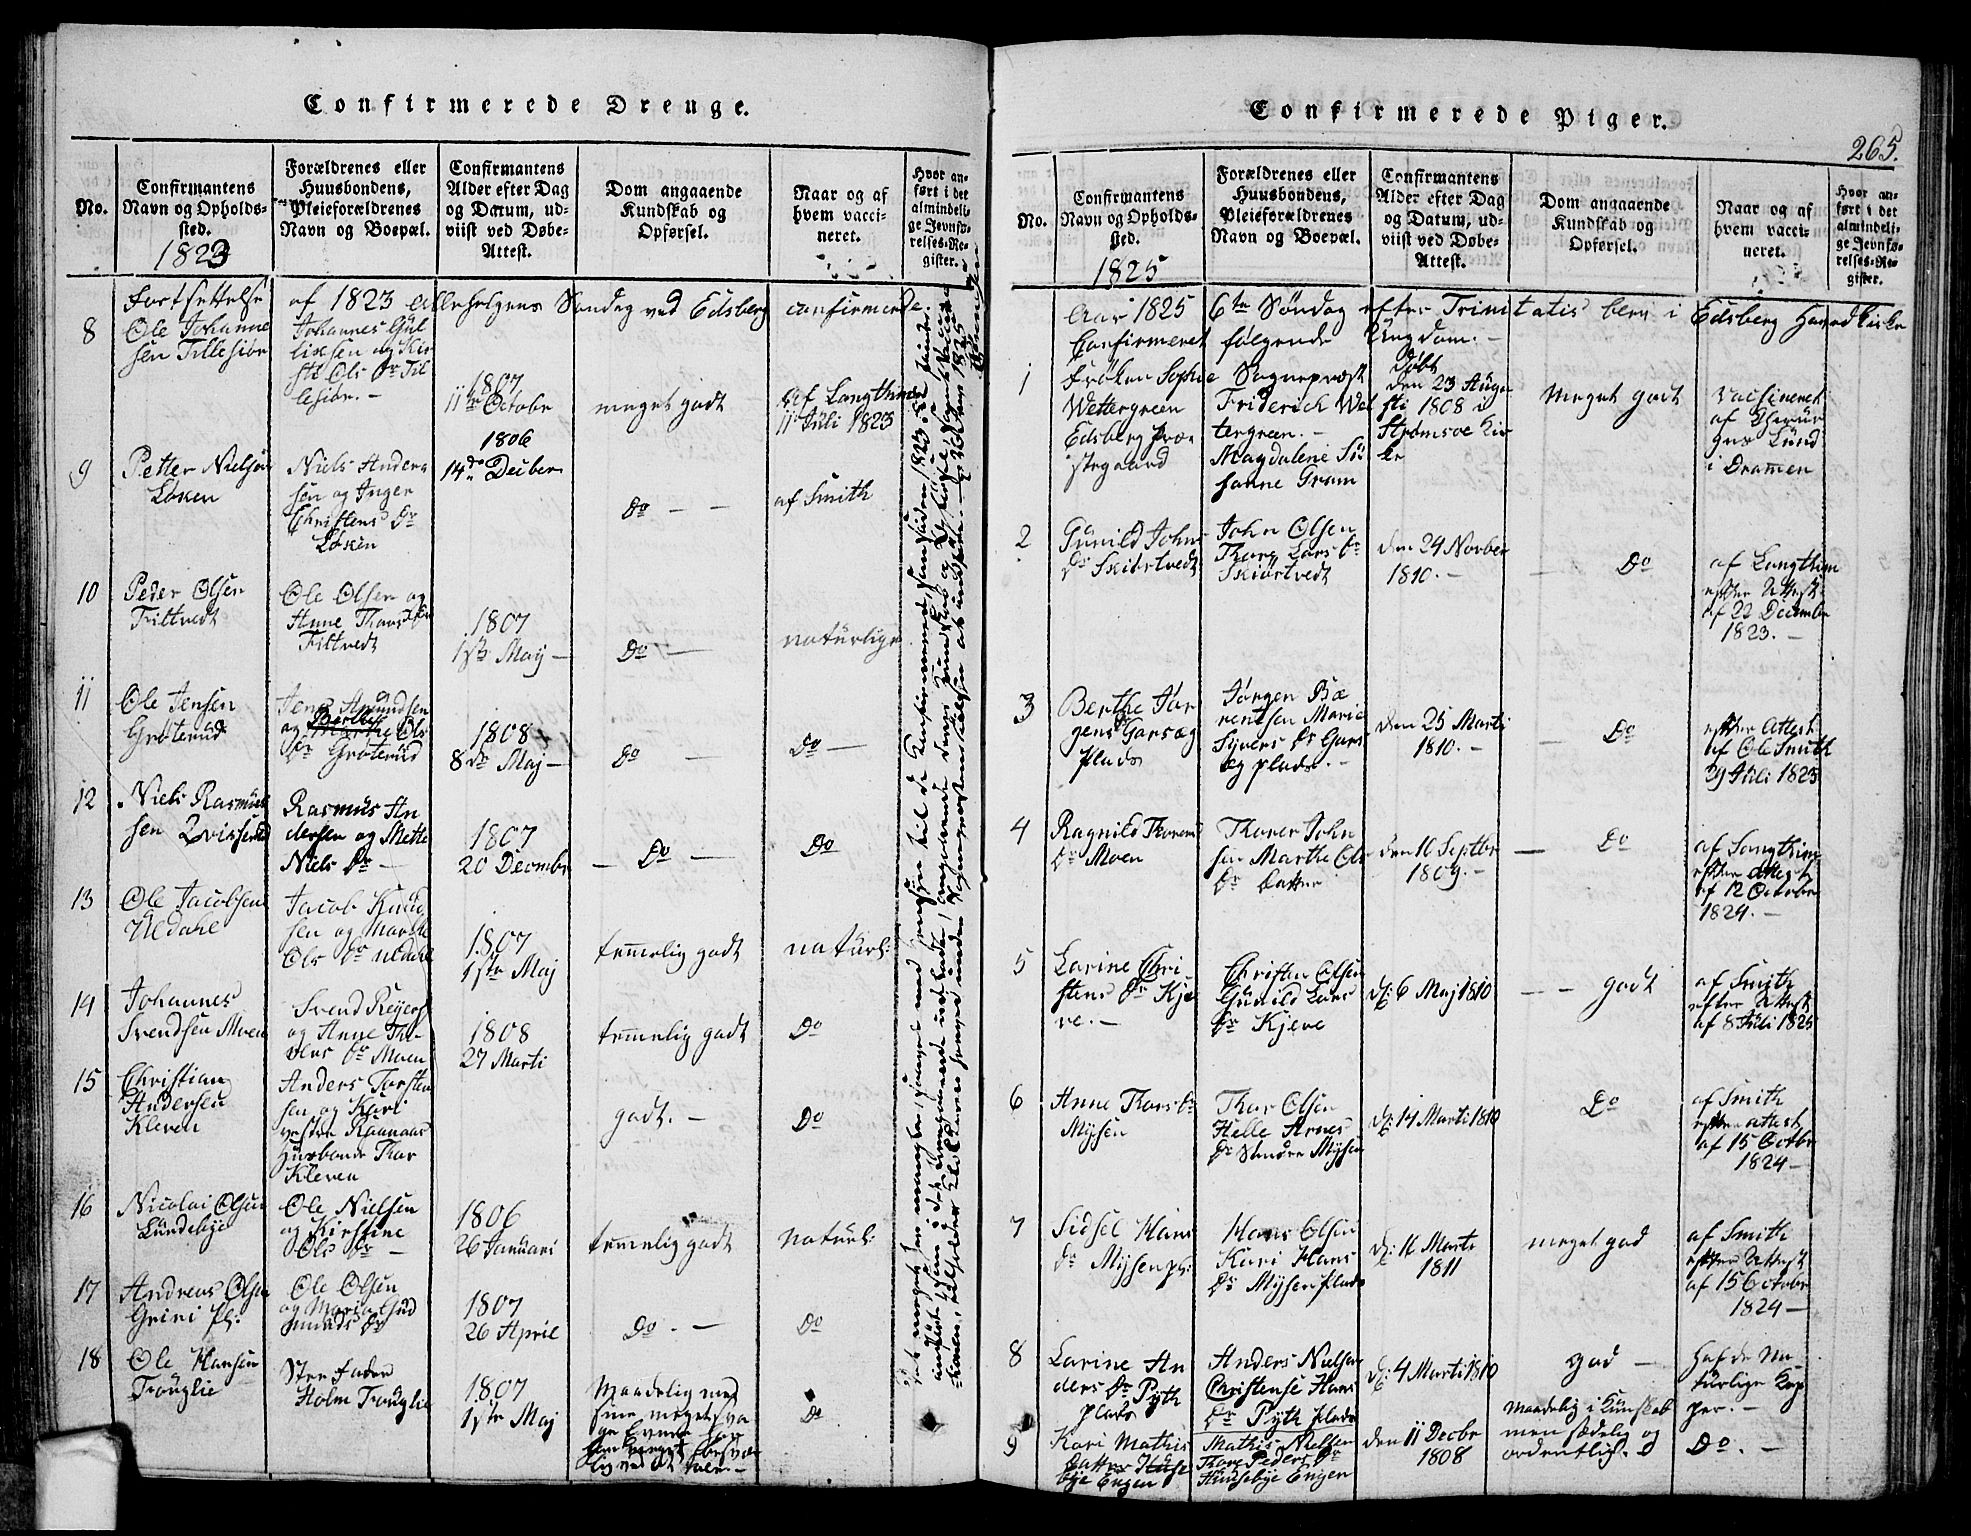 Confirmerede Drenge.
No.
Confirmantens
Navn og Opholds-
sted.
1823
Forældrenes eller
Huusbondens,
Pleieforældrenes
Navn og Boepæl.
Confirmantens
Alder efter Dag
og Datum, ud-
viist ved Døbe-
Attest.
Dom angaaende
Kundskab og
Opførsel.
Naar og af
hvem vacci-
neret.
Hvor an-
ført i det
almindeli-
ge Jevnfø-
relses-Re-
gister.
Fortsettelse af 1823 Allehelgens Søndag ved Edsberg confirmerede
8
Ole Johanne
sen Tillesiør
Johannes Gul
lixsen og Kir
sti Ols Dr Til
lesiør. -
1807
11te Octobr
meget godt
Af Langthim
11 Juli 1823
9
Petter Nielsen
Løken
Niels Anders
sen og Inger
Christens Dr
Løken
1806
14de Decber
Do - -
af Smith
10
Peder Olsen
Trittvedt
Ole Olsen og
Anne Thors Dr
Trittvedt
1807
1ste Maj -
Do -
naturlige
11
Ole Jensen
Grøterud
Jens Amundsen
og Berthe Ols
Dr Grøterud
1808
8de Maj -
Do -
Do -
12
Niels Rasmus
sen
Rasmus An
dersen og Mette
Niels Dr -
1807
20 Decmbr
- Do -
Do
13
Ole Jacobsen
Uldahl
Jacob Knud
sen og Marthe
Ols Dr Uldahl
1807
1ste Maj
temmelig godt
naturl:
14
Johannes
Svendsen Moen
Svend Reyers
og Anne
Dr Moen
1808
27 Marti
temmelig godt
Do
15
Christian
Andersen
Kleven
Anders Torsten
sen og Kari
vestre Raanaas
Husbonde Thor
Kleven
godt. -
Do
16
Nicolai Olsen
Lundebye
Ole Nielsen
og Kirstine
Ols Dr -
1806
26 Januari
temmelig godt
naturl:
17
Andreas Olsen
Grini pl:
Ole Olsen
og Maria Gud
munds Dr
1807
26 April
Do. -
Do
18
Ole Hansen
Trouglie
Steffader
Holm Trouglie
1807
1ste Maj
Maadelig med
sine meget sva
ge Evner har
lig ved at tale -
Do
Confirmerede Piger.
265.
No.
Confirmantens
Navn og Opholds-
sted.
1825
Forældrenes eller
Huusbondens,
Pleieforældrenes
Navn og Boepæl.
Confirmantens
Alder efter Dag
og Datum, ud-
viist ved Døbe-
Attest.
Dom angaaende
Kundskab og
Opførsel.
Naar og af
hvem vacci-
neret.
Hvor an-
ført i det
almindeli-
ge Jevnfø-
relses-Re-
gister.
Aar 1825 6te Søndag efter Trinitatis blev i Edsberg Hovedkirke
Confirmeret følgende Ungdom. -
1
Frøken Sophie
Wettergreen
Edsberg Præ
stegaard
Sognepræst
Friderich Wet
tergreen. -
Magdalene Su
sanne Gram
døbt
den 23 Augu
sti 1808 i
Strømsoe Kir
ke
Meget godt
vaccineret
af Chirur
gus Lund
i Drammen
2
Gunild Johns
Dr Skiørtvedt
John Olsen
Thorg Lars Dr
Skiørtvedt
den 24 Novber
1810. -
- Do
af Langthim
efter Attest
af 22 December
1823. -
3
Berthe Jør
gens Dr Garsæg
plads
Jørgen Bæ
rentsen Marie
Syvers Dr Gars
eg plads. -
den 25 Marti
1810. -
- Do
efter Attest
af Ole Smith
29 Juli 1823
4
Ragnild Thorers
Dr Moen
Thorer John
sen Marthe Ols
Dr
den 16 Septbr
1809. -
- Do
af Langthim
efter Attest
af 12 Octobr
1824. -
5
Larine Chri
stens Dr Kje
ve. -
Christen Olsen
Gunild Lars
Dr Kjeve
d: 6 Maj 1810
- - godt
af Smith
efter Attest
af 8 Juli 1825
6
Anne Thors Dr
Mysen
Thor Olsen
Helle Arnes
Dr Søndre Mysen
d: 14 Marti 1810
Do
af Smith
efter attest
af 15 Octbr
1824 -
7
Sidsel Hans
Dr Mysen pl:
Hans Olsen
Kari Hans
Dr Mysen plads
d: 16 Marti
1811
meget god
af Smith
efter Attest
af 15 Octobr
1824 -
8
Larine An
ders Dr Pyth
plads
Anders Nielsen
Christense Hans
Dr Pyth plads
d: 4 Marti 1810
god -
Haft de Na
turlige Kop
per. -
9
Kari Mathis
datter Huse
bye Engen
Mathis Nielsen
Thore Peders Dr
Hunsebye Engen
den 11 Decbr
1808
maadelig i Kunskab
men sædelig og
ordentlig. -
Do. -